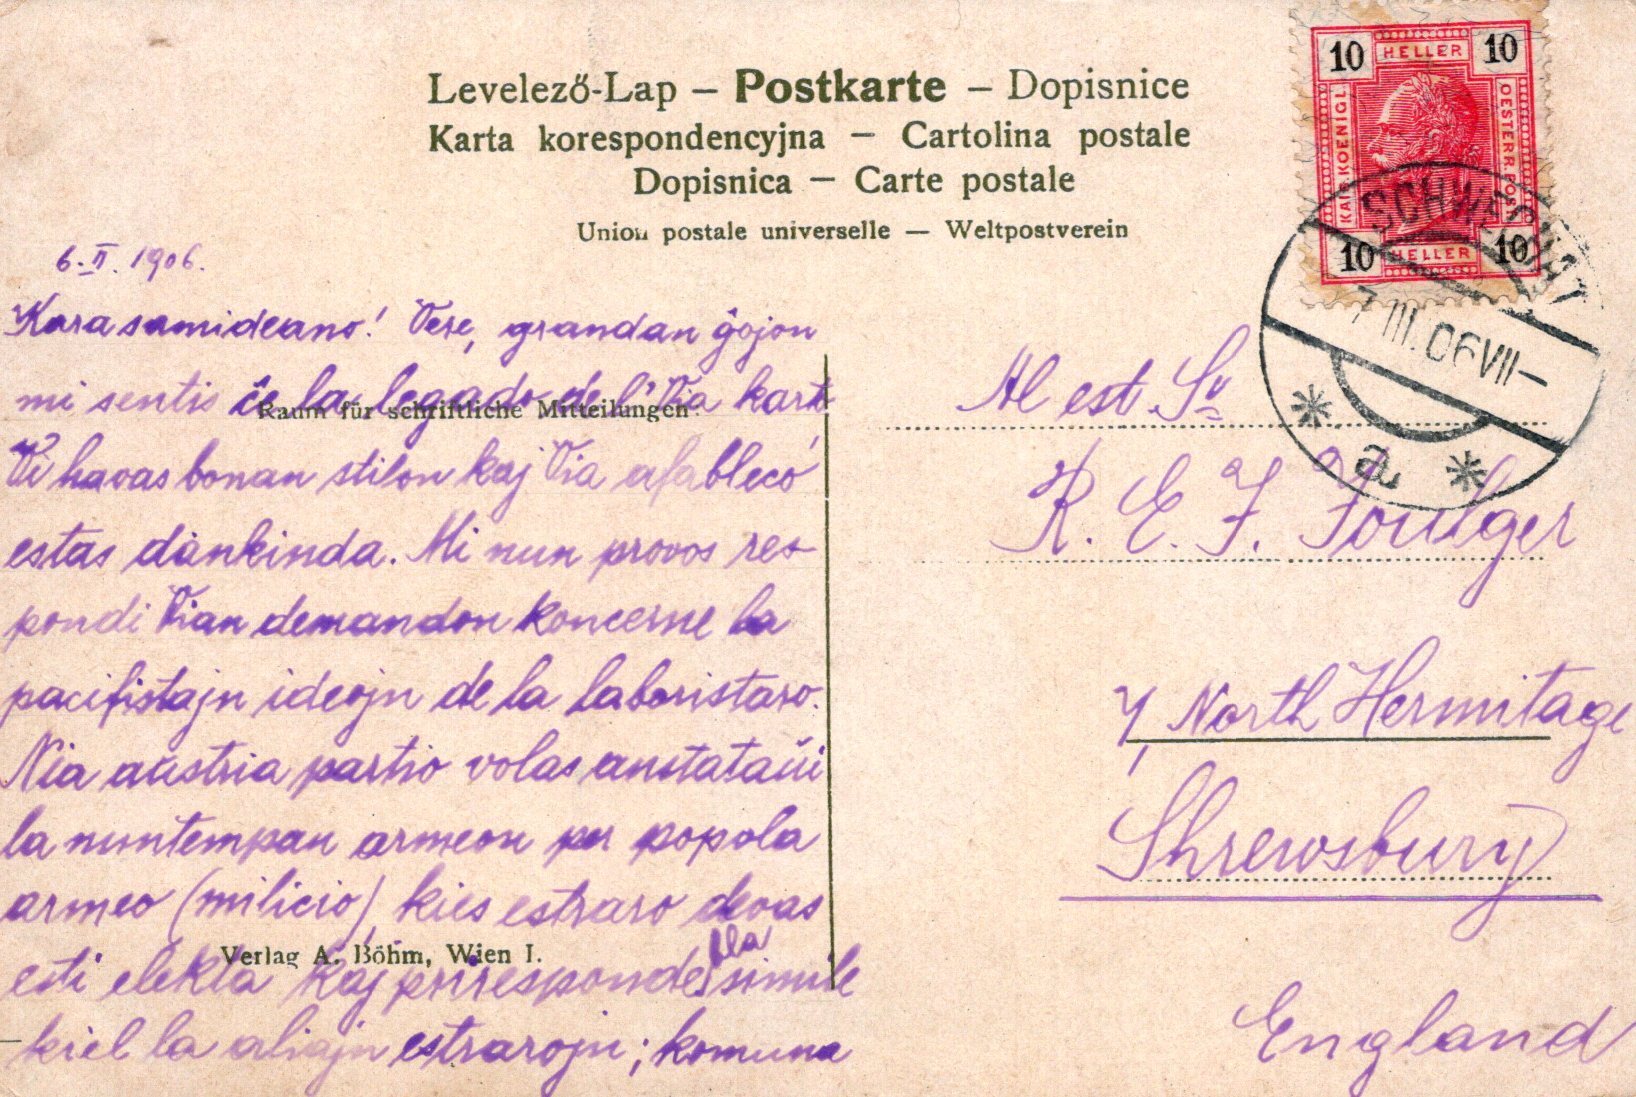 Levelező-Lap – Postkarte – Dopisnice
Karta korespondencyjna – Cartolina postale
Dopisnica – Carte postale
Union postale universelle – Weltpostverein
10 HELLER 10
KAIS. KOENIGL. OESTERR. POST
10 HELLER 10
SCHWECHAT
7 III. 06 VII –
* a *
6. II. 1906.
Kara samideano! Vere, grandan ĝojon
mi sentis ĉe la legado de l' Via kart'
Raum für schriftliche Mitteilungen
Vi havas bonan stilon kaj Via afableco
estas dankinda. Mi nun provos res-
pondi Vian demandon koncerne la
pacifistajn ideojn de la laboristaro.
Nia aŭstria partio volas anstataŭi
la nuntempan armeon per popola
armeo (milicio), kies estraro devas
esti elekta kaj prirespondebla simile
Verlag A. Böhm, Wien I.
kiel la aliajn estrarojn; komuna
Al est. Sro
R. E. F. Foulger
7, North Hermitage
Shrewsbury
England